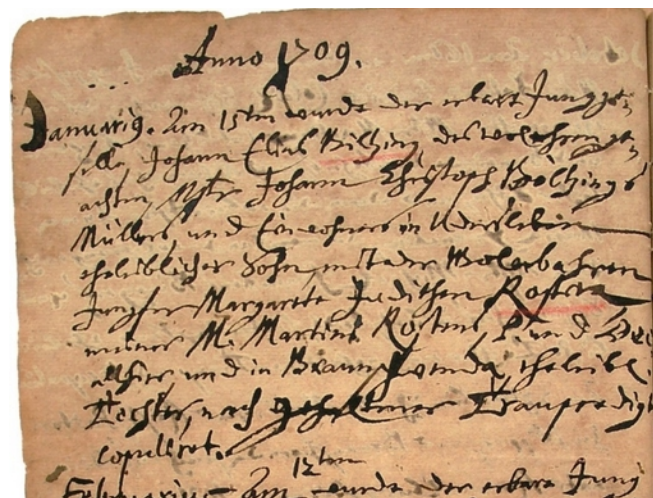 Anno 1709.
Januarij. Am 15ten wurde der erbare Jungge,
selle, Johann Elias Bilzing, des wolehren ge,
achten, Mstr Johann Christoph Bölzings
Müllers, und Einwohners in Udersleben
eheleiblicher Sohn, mit der Wolerbahren
Jungfer Margarete Judithen Rosten
meiner M. Martini Rostens, P. und
allhier, und in Braunschwenda, eheleibl.
Tochter, nach gehaltener Traupredigt
copuliret.
Februarius Am 12ten wurde der erbare Jung